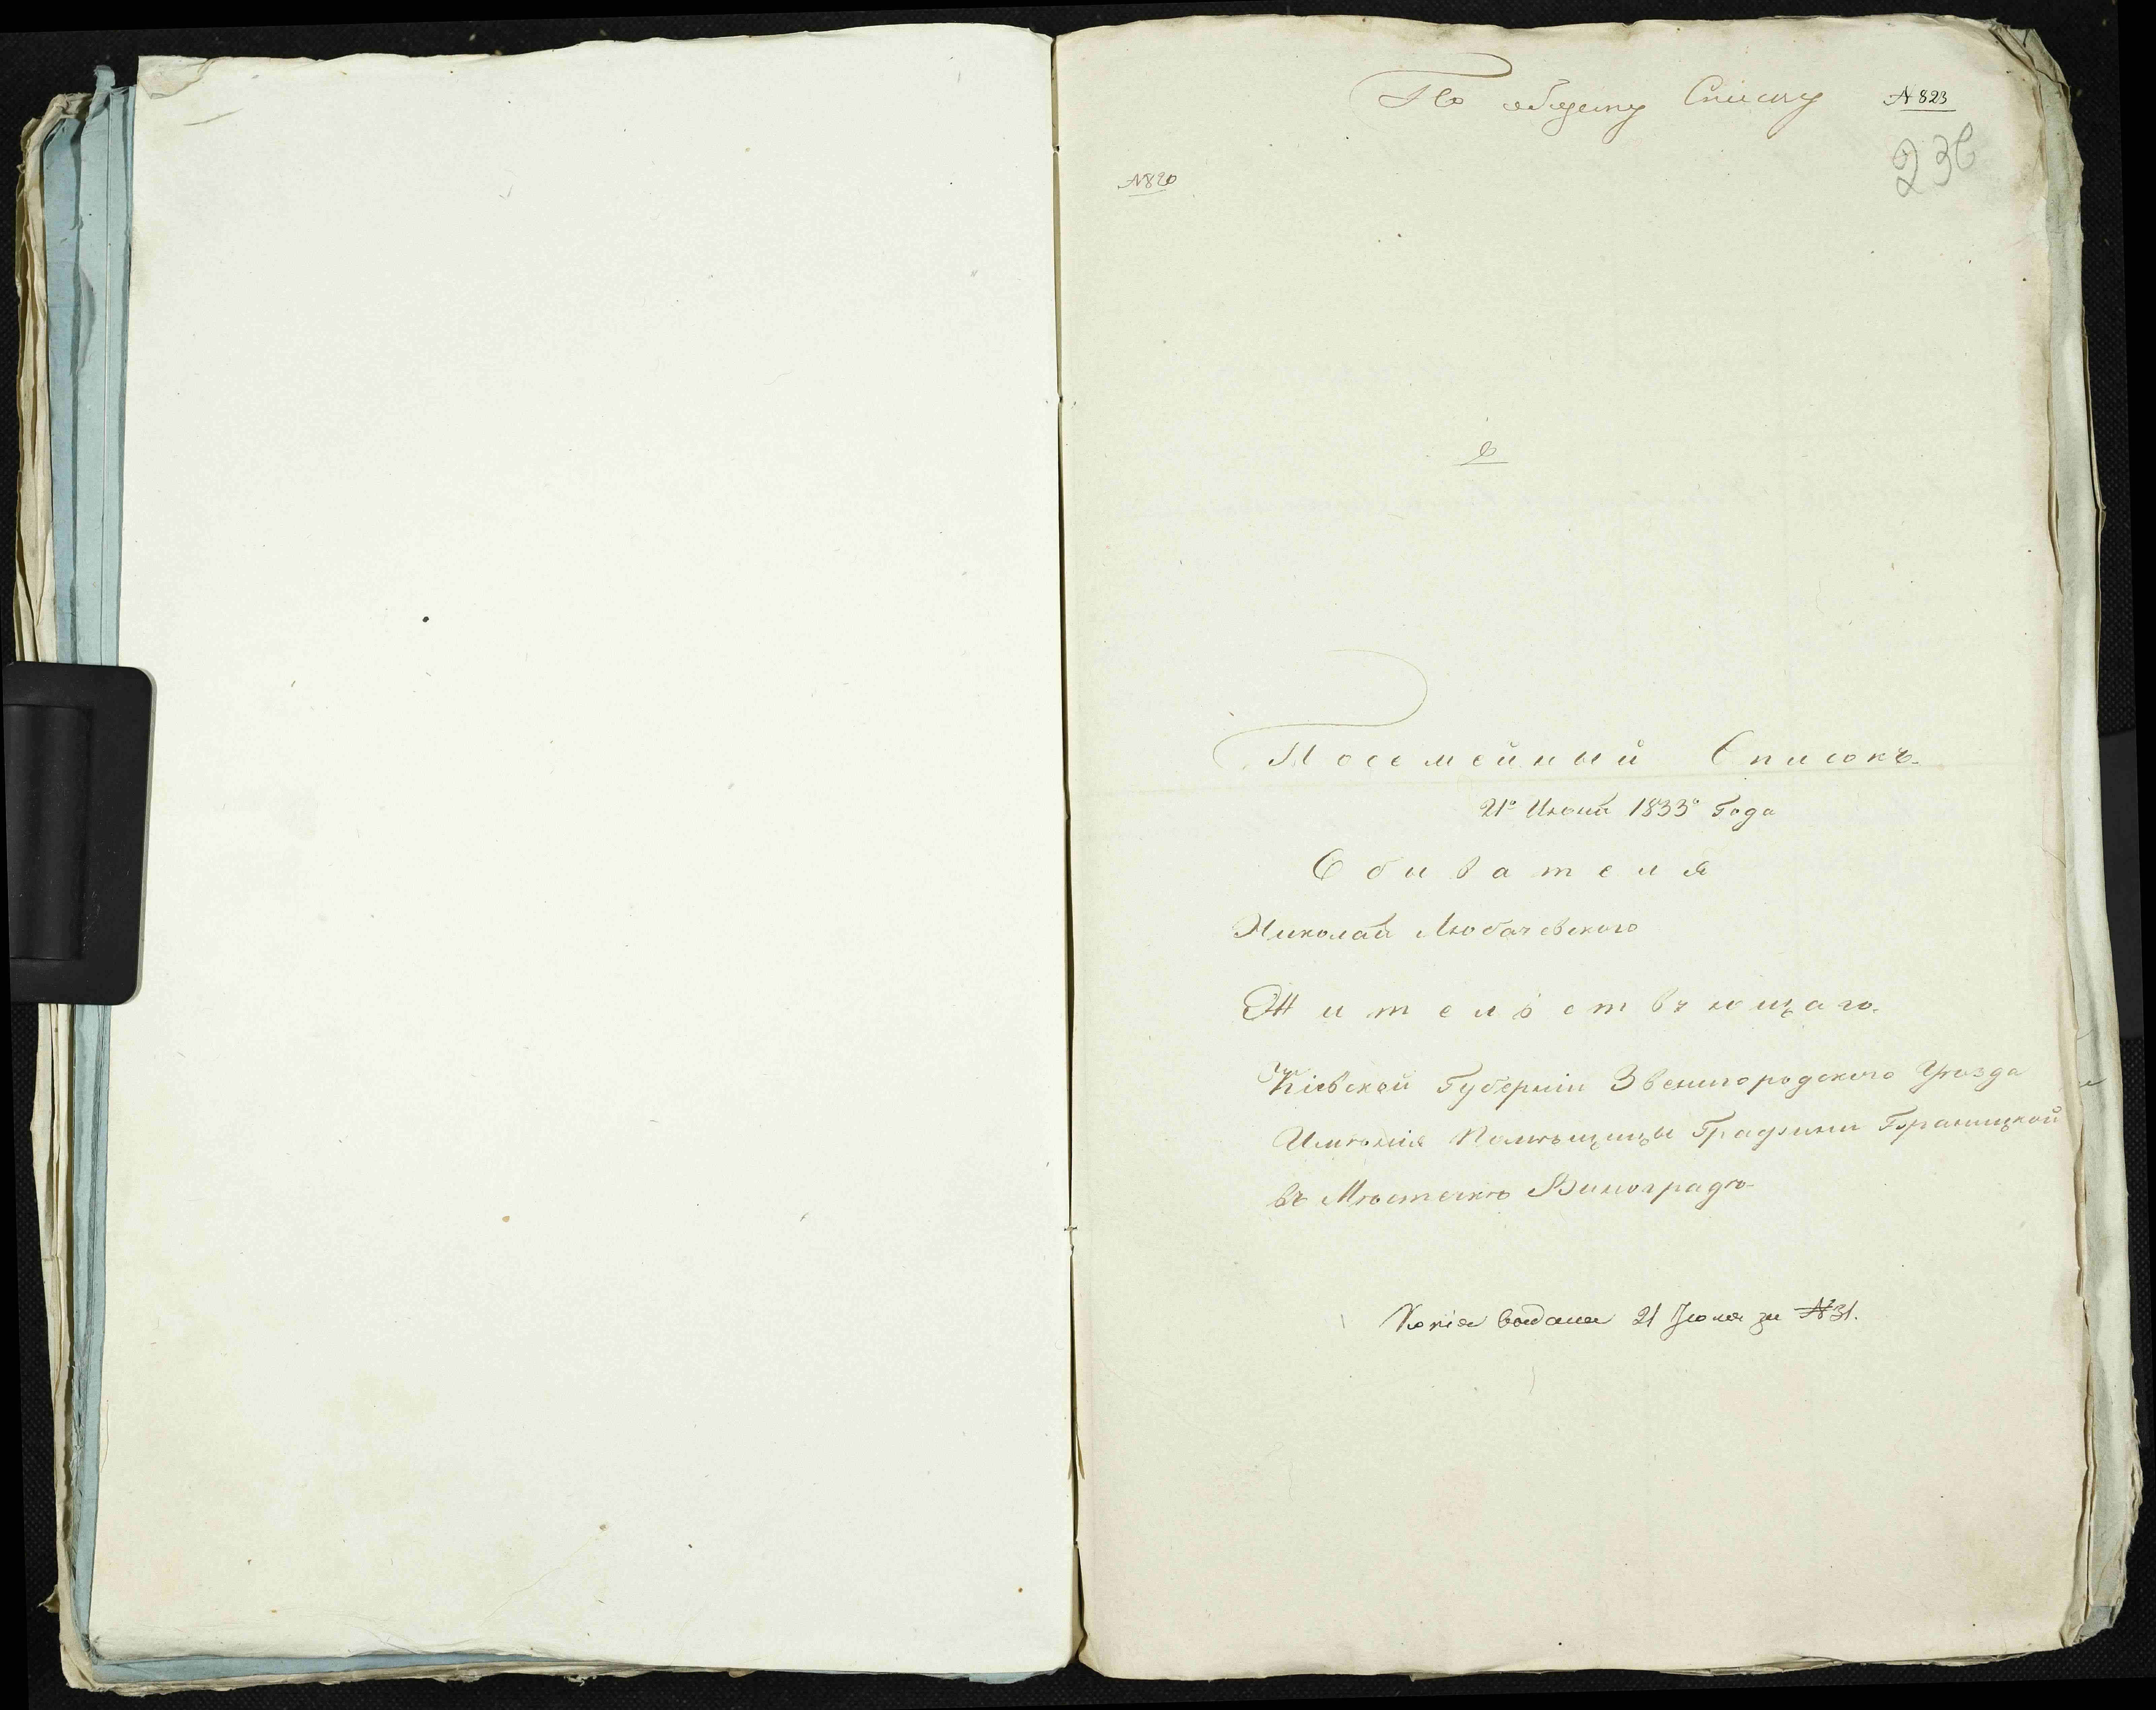 По общему Списку №823
236
№820
Посемейный Списокъ.
21º Июня 1833º Года
Обивателя
Николай Любачевского
Жительствующаго.
Кіевской Губерніи Звенигородского Уѣзда
Имѣнія Помѣщицы Графини Браницкой
въ Мѣстечкѣ Виноградѣ
Копія выдана 21 Іюня за №31.